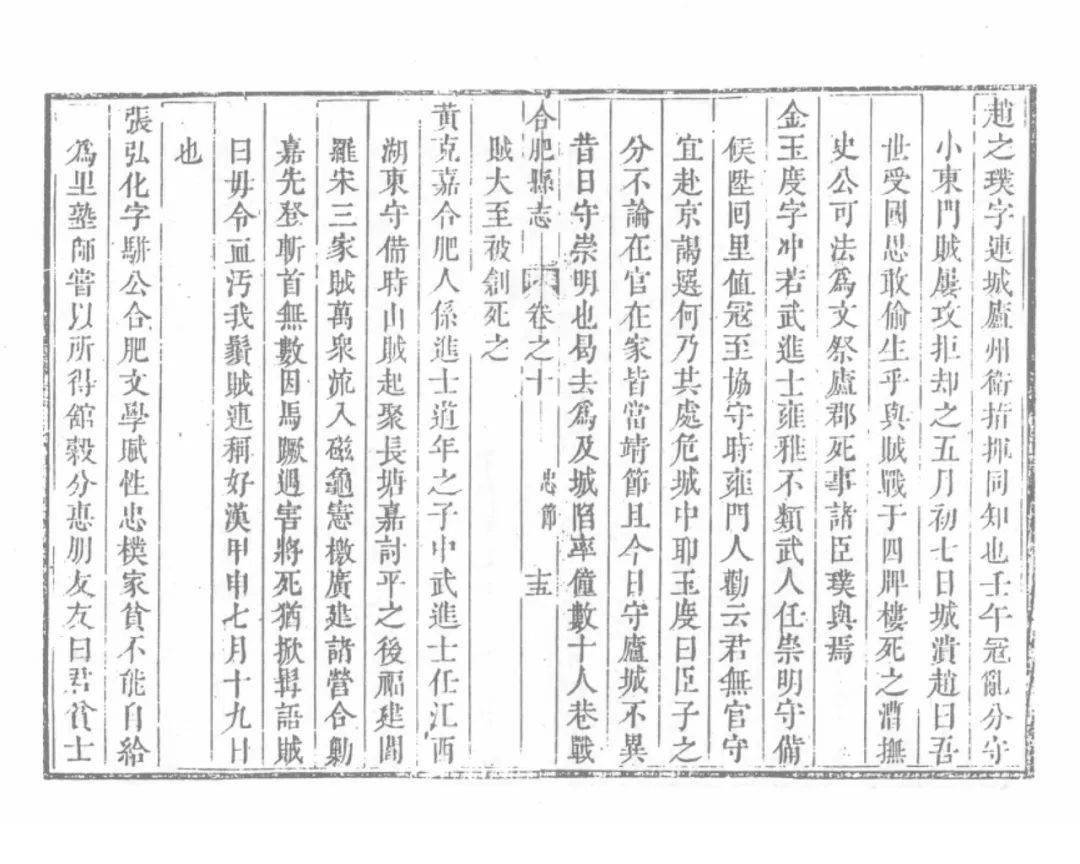 趙之璞字連城廬州衛指揮同知也壬午寇亂分守
小東門賊屢攻拒却之五月初七日城潰趙曰吾
世受國恩敢偷生乎與賊戰于四牌樓死之漕撫
史公可法為文祭廬郡死事諸臣璞與焉
金玉度字冲若武進士雍雅不類武人任崇明守備
候陞囘里值寇至協守時雍門人勸云君無官守
宜赴京謁選何乃其處危城中耶玉度曰臣子之
分不論在官在家皆當靖節且今日守廬城不異
昔日守崇明也曷去為及城陷率僮數十人巷戰
合肥縣志 卷之十 忠節 十五
賊大至被創死之
黃克嘉合肥人係進士道年之子中武進士任江西
湖東守備時山賊起聚長塘嘉討平之後福建閻
羅宋三家賊萬衆流入磁龜憲檄廣建諸營合勦
嘉先登斬首無數因馬蹶遇害將死猶掀髯語賊
曰毋令血污我鬚賊連稱好漢甲申七月十九日
也
張弘化字駢公合肥文學賦性忠樸家貧不能自給
為里塾師嘗以所得館穀分惠朋友友曰君貧士